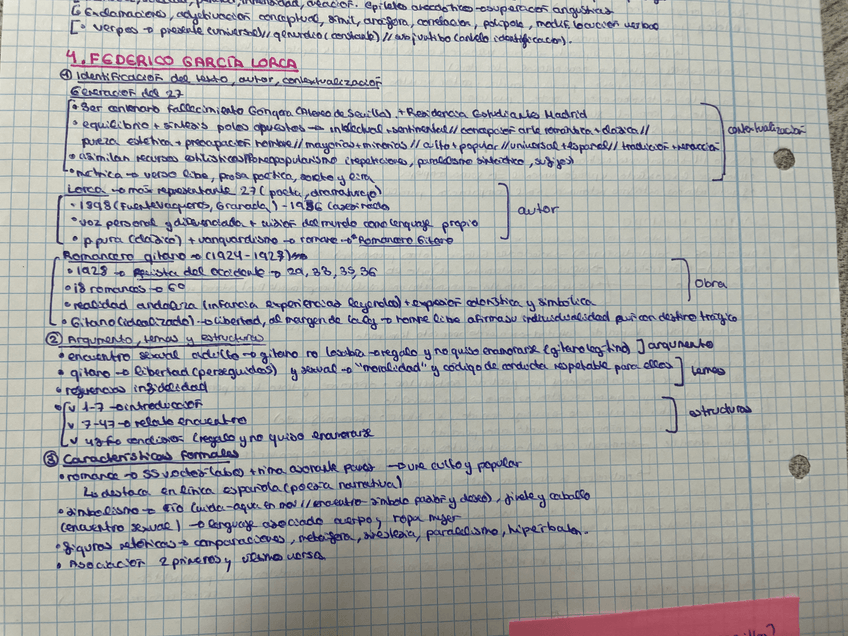 [• Exclamaciones, adjetivación conceptual, símil, anáfora, correlación, políptote, modif. locución verbo
[• Verbos → presente (universal)//
4. FEDERICO GARCÍA LORCA
① Identificación del texto, autor, contextualización
Generación del 27
• 3er centenario fallecimiento Góngora (Ateneo de Sevilla) + Residencia Estudiantes Madrid
• equilibrio + síntesis polos opuestos → intelectual + sentimental // concepción arte romántica + clásica //
pureza estética + preocupación hombre // mayorías + minorías // culto + popular // universal + español // tradición + renovación
contextualización
• asimilan recursos estilísticos Neopopularismo (repeticiones, paralelismo sintáctico,
• métrica → verso libre, prosa poética, soneto y lira
Lorca → más representante 27 (poeta, dramaturgo)
• 1898 (Fuentevaqueros, Granada) - 1936 (asesinado
• voz personal y diferenciada + visión del mundo con lenguaje propio
autor
• p. pura (clásico) + vanguardismo → romance → "Romancero Gitano
Romancero gitano → (1924-1927)
• 1928 → Revista del occidente → 29, 33, 35, 36
• 18 romances → 60
Obra
• realidad andaluza (infancia experiencias leyendas) + expresión colorística y simbólica
• Gitano (idealizado) → libertad, al margen de la ley → hombre libre afirma su individualidad pero con destino trágico
② Argumento, temas y estructuras
• encuentro sexual adulto → gitano no lo sabía → regalo y no quiso enamorarse (gitano legítimo) ] argumento
• gitano → libertad (perseguidos) y sexual → "moralidad" y código de conducta respetable para ellos ] temas
• referencias infidelidad
• [✓ 1-7 → introducción
✓ 7-47 → relato encuentro
estructuras
✓ 48-60 condiciones (regalo y no quiso enamorarse
③ Características formales
• romance → 55 v octosílabos + rima asonante pares → une culto y popular
↳ destaca en lírica española (poesía narrativa)
• simbolismo → río (vida-agua en mov // encuentro-símbolo pasión y deseo), jinete y caballo
(encuentro sexual) → lenguaje asociado cuerpo y ropa mujer
• figuras retóricas → comparaciones, metáfora, sinestesia, paralelismo, hipérbaton.
• Asociación 2 primeros y últimos versos